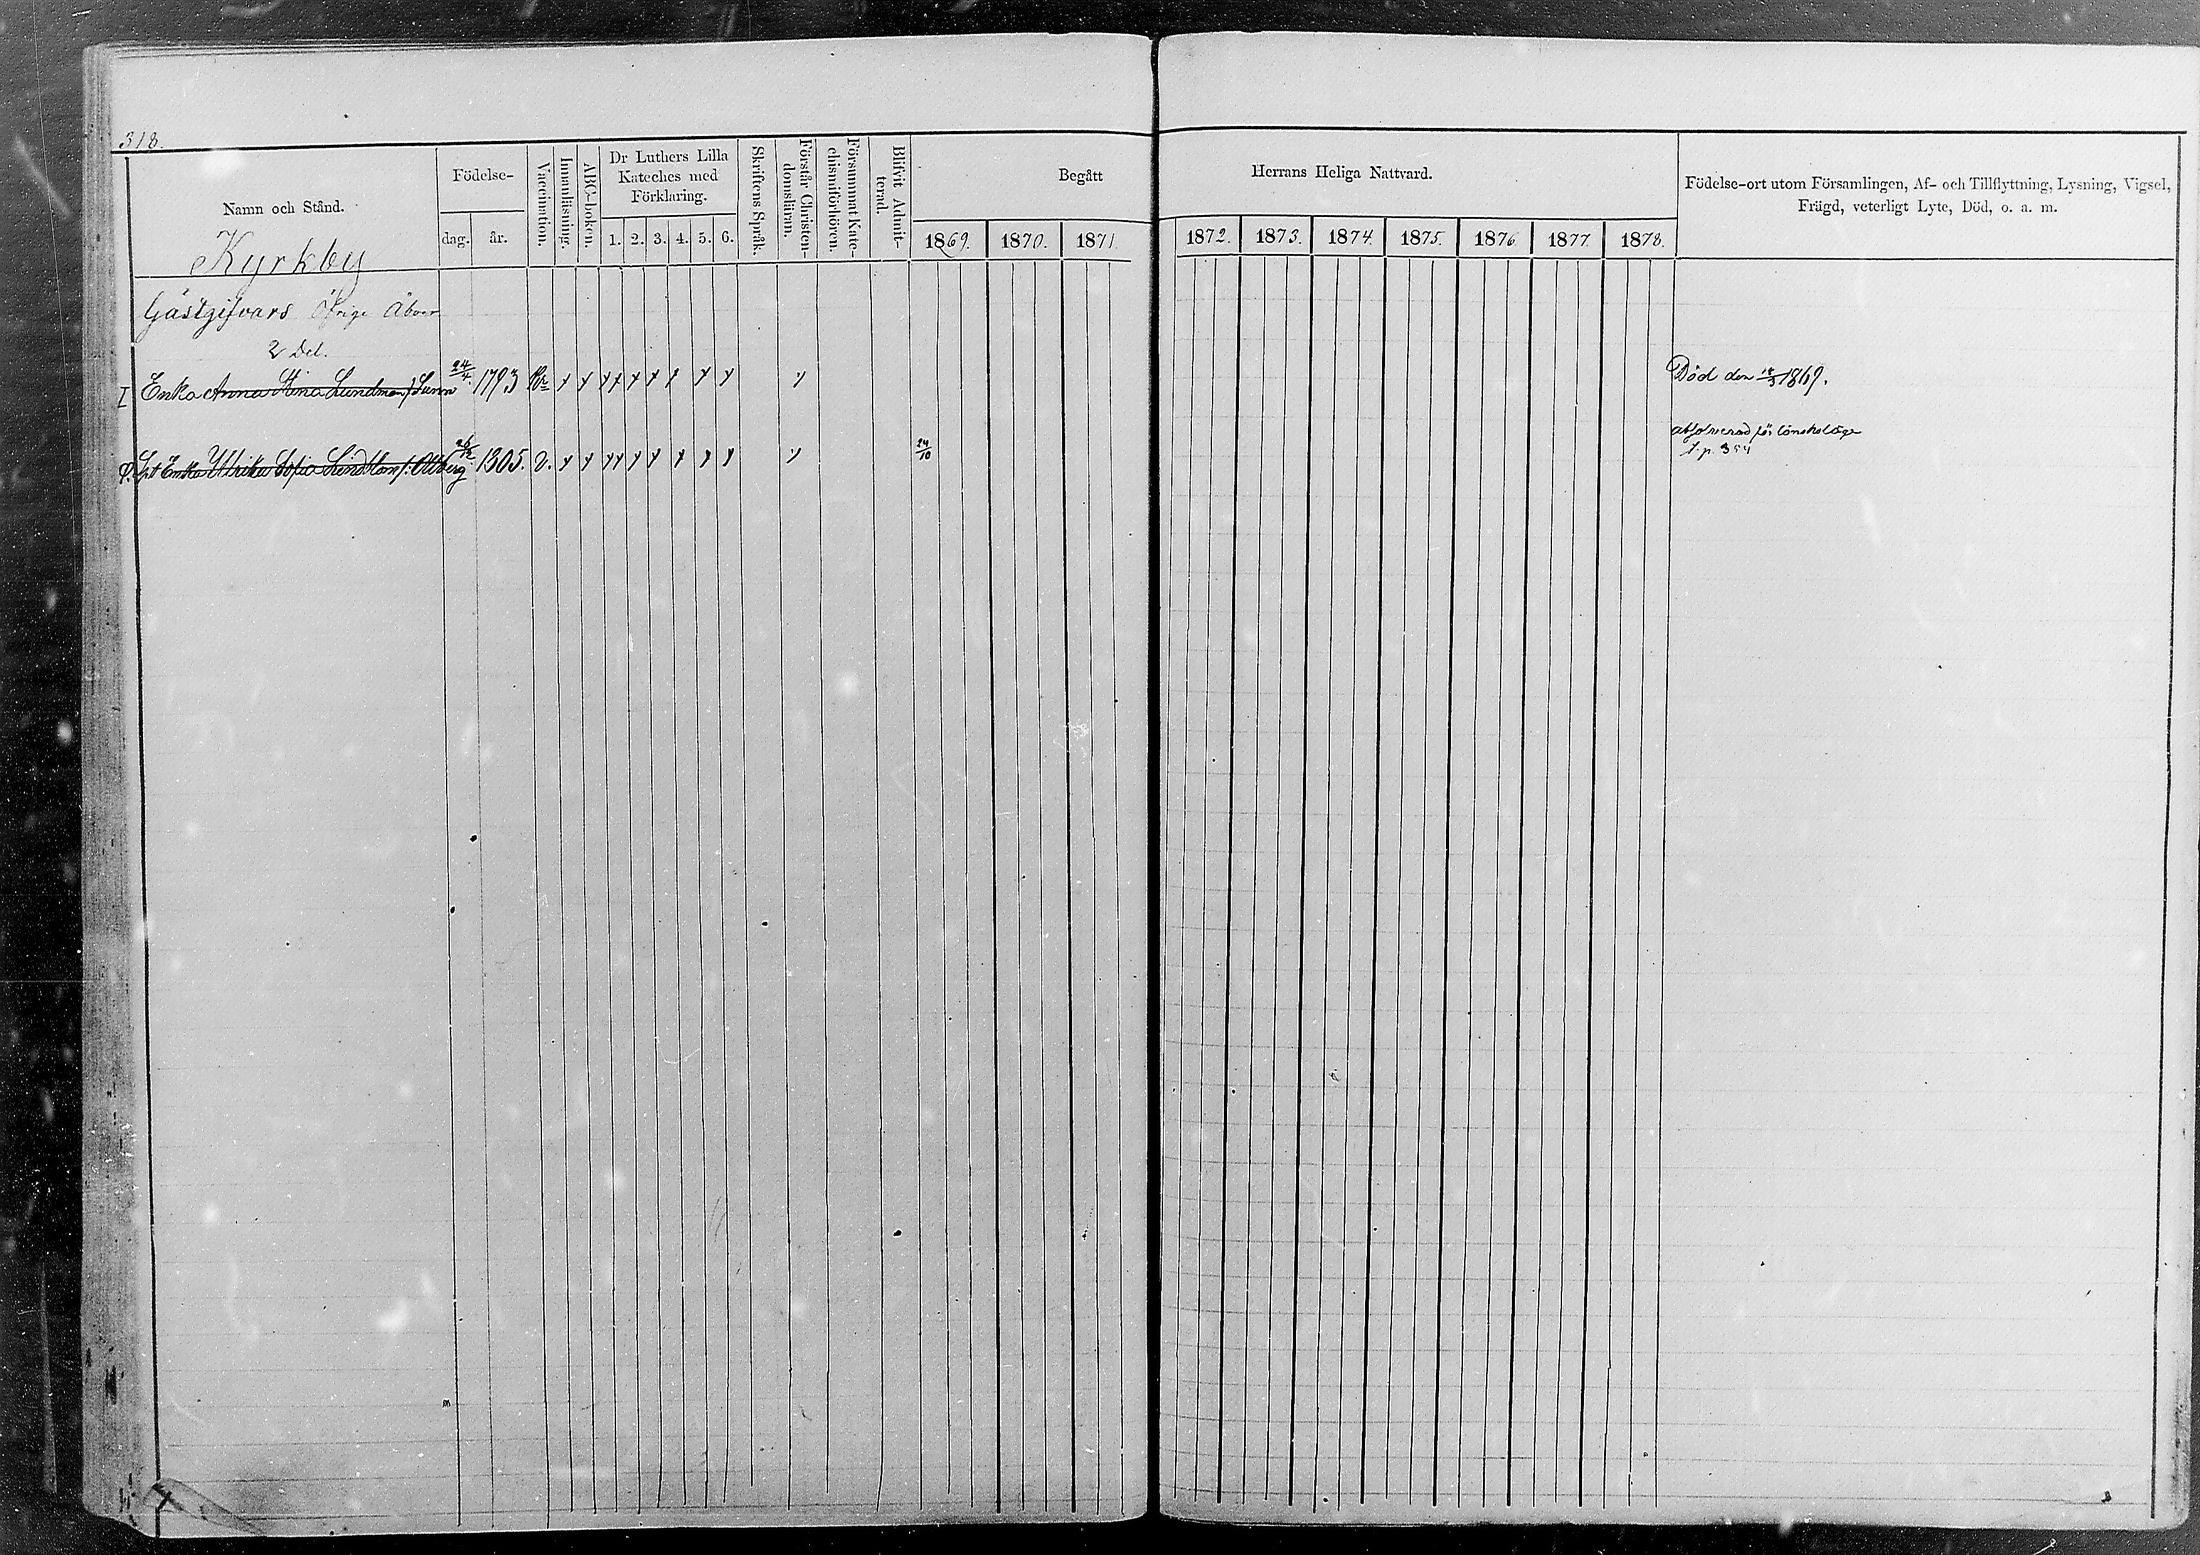 318.
Namn och Stånd.
Födelse-
dag.
år.
Vaccination.
Innanläsning.
ABC-boken.
Dr Luthers Lilla
Kateches med
Förklaring.
1. 2. 3. 4. 5. 6.
Skriftens Språk.
Förstår Christen-
domsläran.
Försummat Kate-
chismiförhören.
Blifvit Admit-
terad.
Begått
Herrans Heliga Nattvard.
1869. 1870. 1871. 1872. 1873. 1874. 1875. 1876. 1877. 1878.
Födelse-ort utom Församlingen, Af- och Tillflyttning, Lysning, Vigsel,
Frägd, veterligt Lyte, Död, o. a. m.
Kyrkby
Gästgifvars Öfrige Åboer
2 Del.
Enka Anna Stina Lundman 24/4. 1793 Död den 18/3 1869.
Enka Ulrika Sofia Lindblom f. 1805. v. 24/10 för lönskaläge
t. p. 354